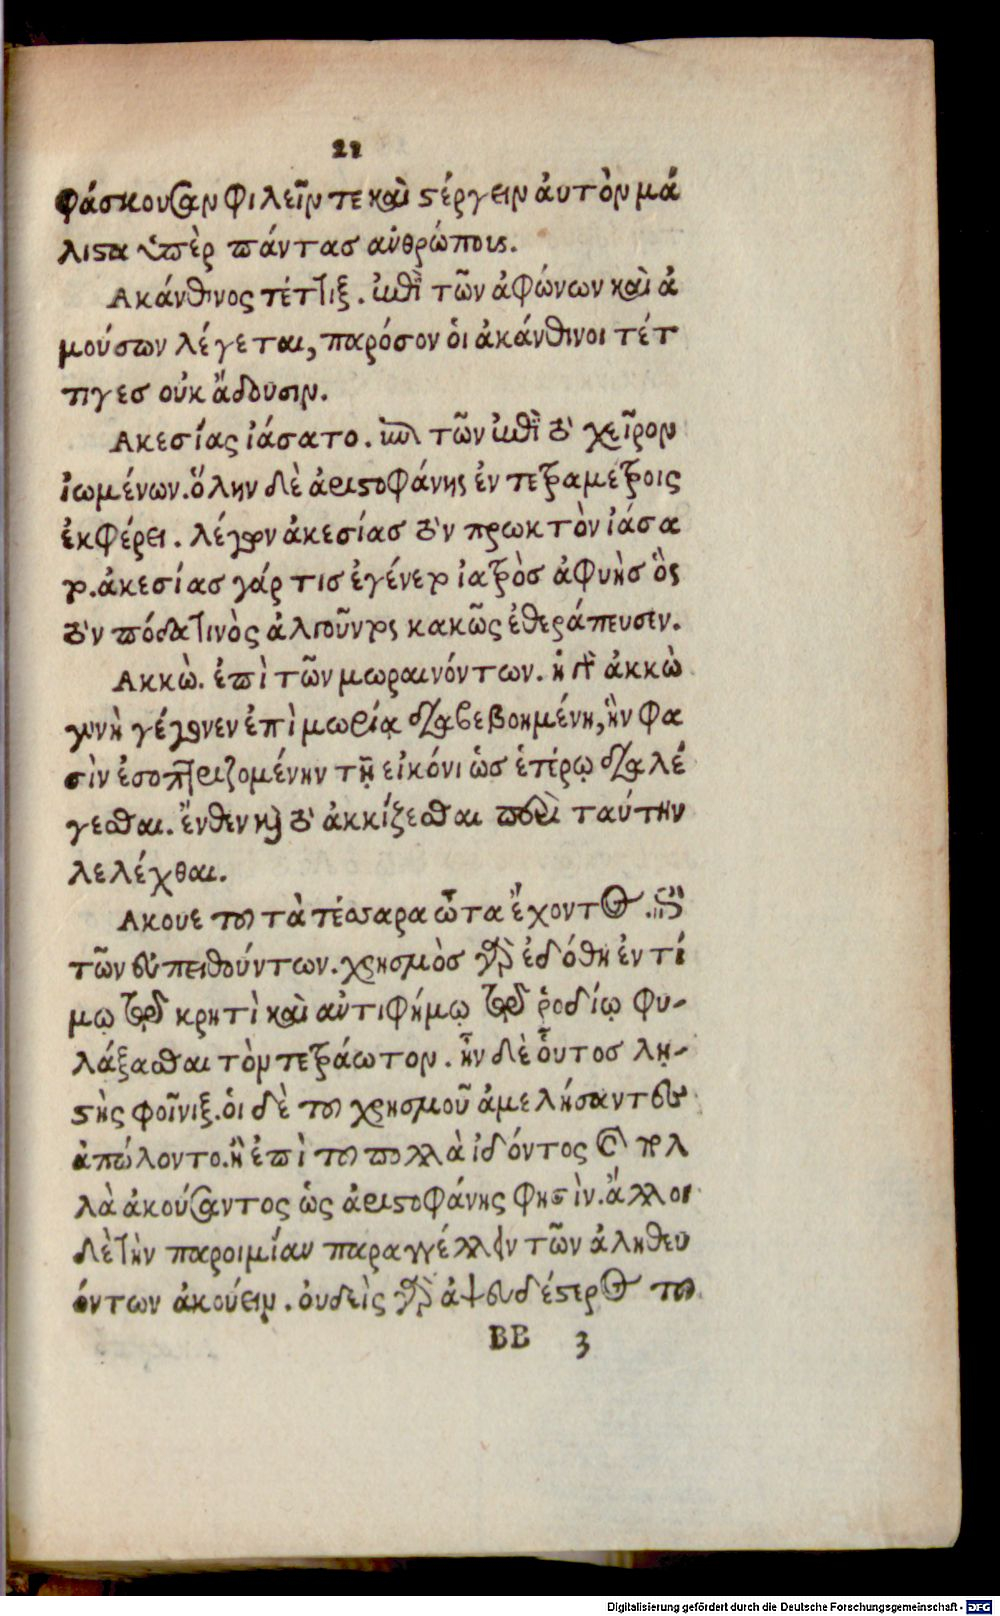 21
φάσκουσαν φιλεῖν τε καὶ στέργειν ἀυτὸν μά
λιστα ὑπὲρ πάντας ανθρώπους.
Ακάνθινος τέττιξ. ἐπὶ τῶν ἀφώνων καὶ ἀ
μούσων λέγεται, παρόσον ὁι ἀκάνθινοι τέτ
τιγες οὐκ ἄδουσιν.
Ακεσίας ἰάσατο. ἐπὶ τῶν ἐπὶ τὸ χεῖρον
ἰωμένων. ὅλην δὲ ἀριστοφάνης ἐν τετραμέτροις
ἐκφέρει. λέγων ἀκεσίας τὸν πρωκτὸν ἰάσα
το. ἀκεσίας γάρ τις ἐγένετο ἰατρὸς ἀφυὴς ὃς
τὸν πόδα τινὸς ἀλγοῦντος κακῶς ἐθεράπευσεν.
Ακκὼ. ἐπὶ τῶν μωραινόντων. ἡ γὰρ ἀκκὼ
γυνὴ γέγονεν ἐπὶ μωρίᾳ διαβεβοημένη, ἣν φα
σὶν ἐσοπτριζομένην τῇ εἰκόνι ὡς ἑτέρῳ διαλέ
γεσθαι. ἔνθεν καὶ τὸ ἀκκίζεσθαι περὶ ταύτην
λελέχθαι.
Ακουε του τὰ τέσσαρα ὦτα ἔχοντος. ἐπὶ
τῶν ἀπειθούντων. χρησμὸς γὰρ ἐδόθη ἐν τί
μῳ τῷ κρητὶ καὶ αὐτιφήμῳ τῷ ῥοδίῳ φυ-
λάξασθαι τὸν τετράωτον. ἦν δὲ ὅυτος λῃ-
στὴς φοῖνιξ. ὁι δὲ του χρησμοῦ ἀμελήσαντες
ἀπώλοντο. ἢ ἐπὶ του πολλὰ ἰδόντος καὶ πολ
λὰ ἀκούσαντος ὡς ἀριστοφάνης φησὶν. ἄλλοι
δὲ τὴν παροιμίαν παραγγέλλειν τῶν ἀληθευ
όντων ἀκούειν. ὀυδεὶς γὰρ ἀψευδέστερος του
BB 3
Digitalisierung gefördert durch die Deutsche Forschungsgemeinschaft - DFG